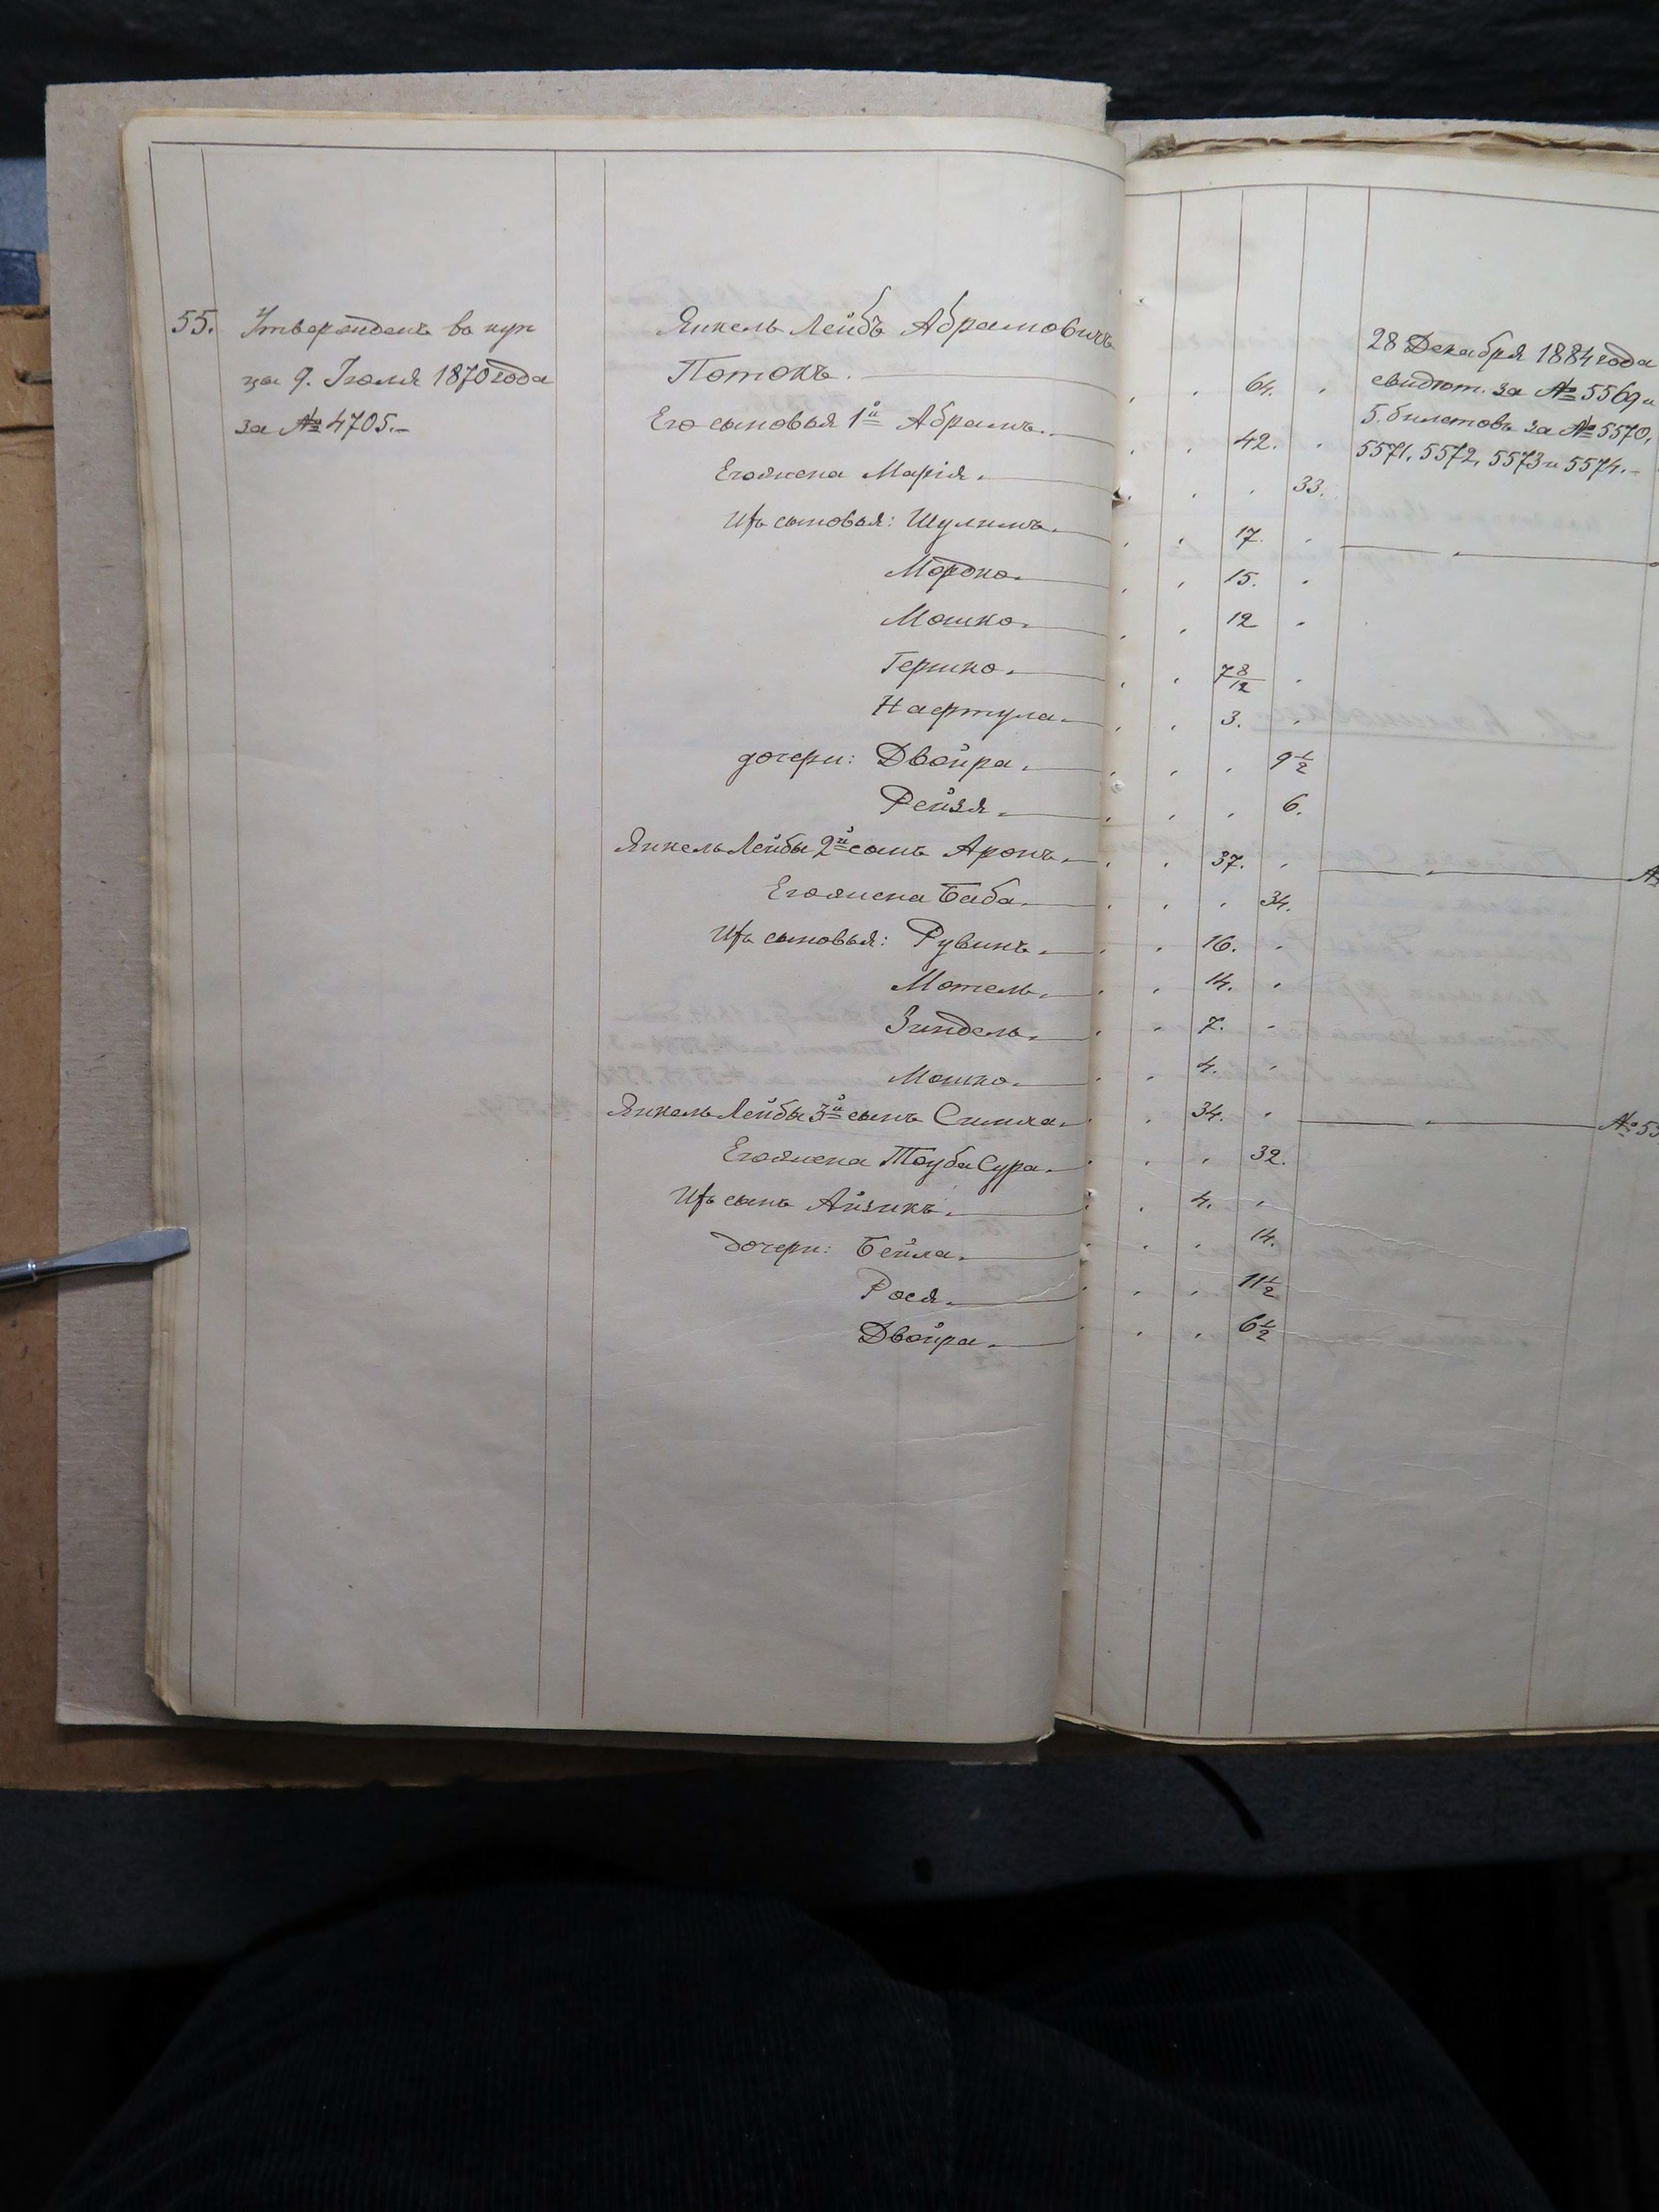 55. Утвержденъ въ куп
цы 9. Іюля 1870 года
за № 4705.-
Янкель Лейбъ Абрамовичъ
Потокъ. 64.
Его сыновья 1й Абрамъ. 42.
Его жена Марія. 33.
Ихъ сыновья: Шулимъ. 17.
Мордко. 15.
Мошко. 12
Гершко. 7 8/12
Нафтула. 3.
дочери: Двойра. 9 1/2
Рейзя. 6.
Янкель Лейбы 2й сынъ Аронъ. 37.
Его жена Баба. 34.
Ихъ сыновья: Рувинъ. 16.
Мотель. 14.
Зиндель. 7.
Мошко. 4.
Янкель Лейбы 3й сынъ Симха. 34.
Его жена Тауба Сура. 32.
Ихъ сынъ Айзикъ. 4.
дочери: Бейла. 14.
Рося. 11 1/2
Двойра. 6 1/2
28 Декабря 1884 года
свидѣт. за № 5569 и
5. билетовъ за № 5570,
5571, 5572, 5573 и 5574.-